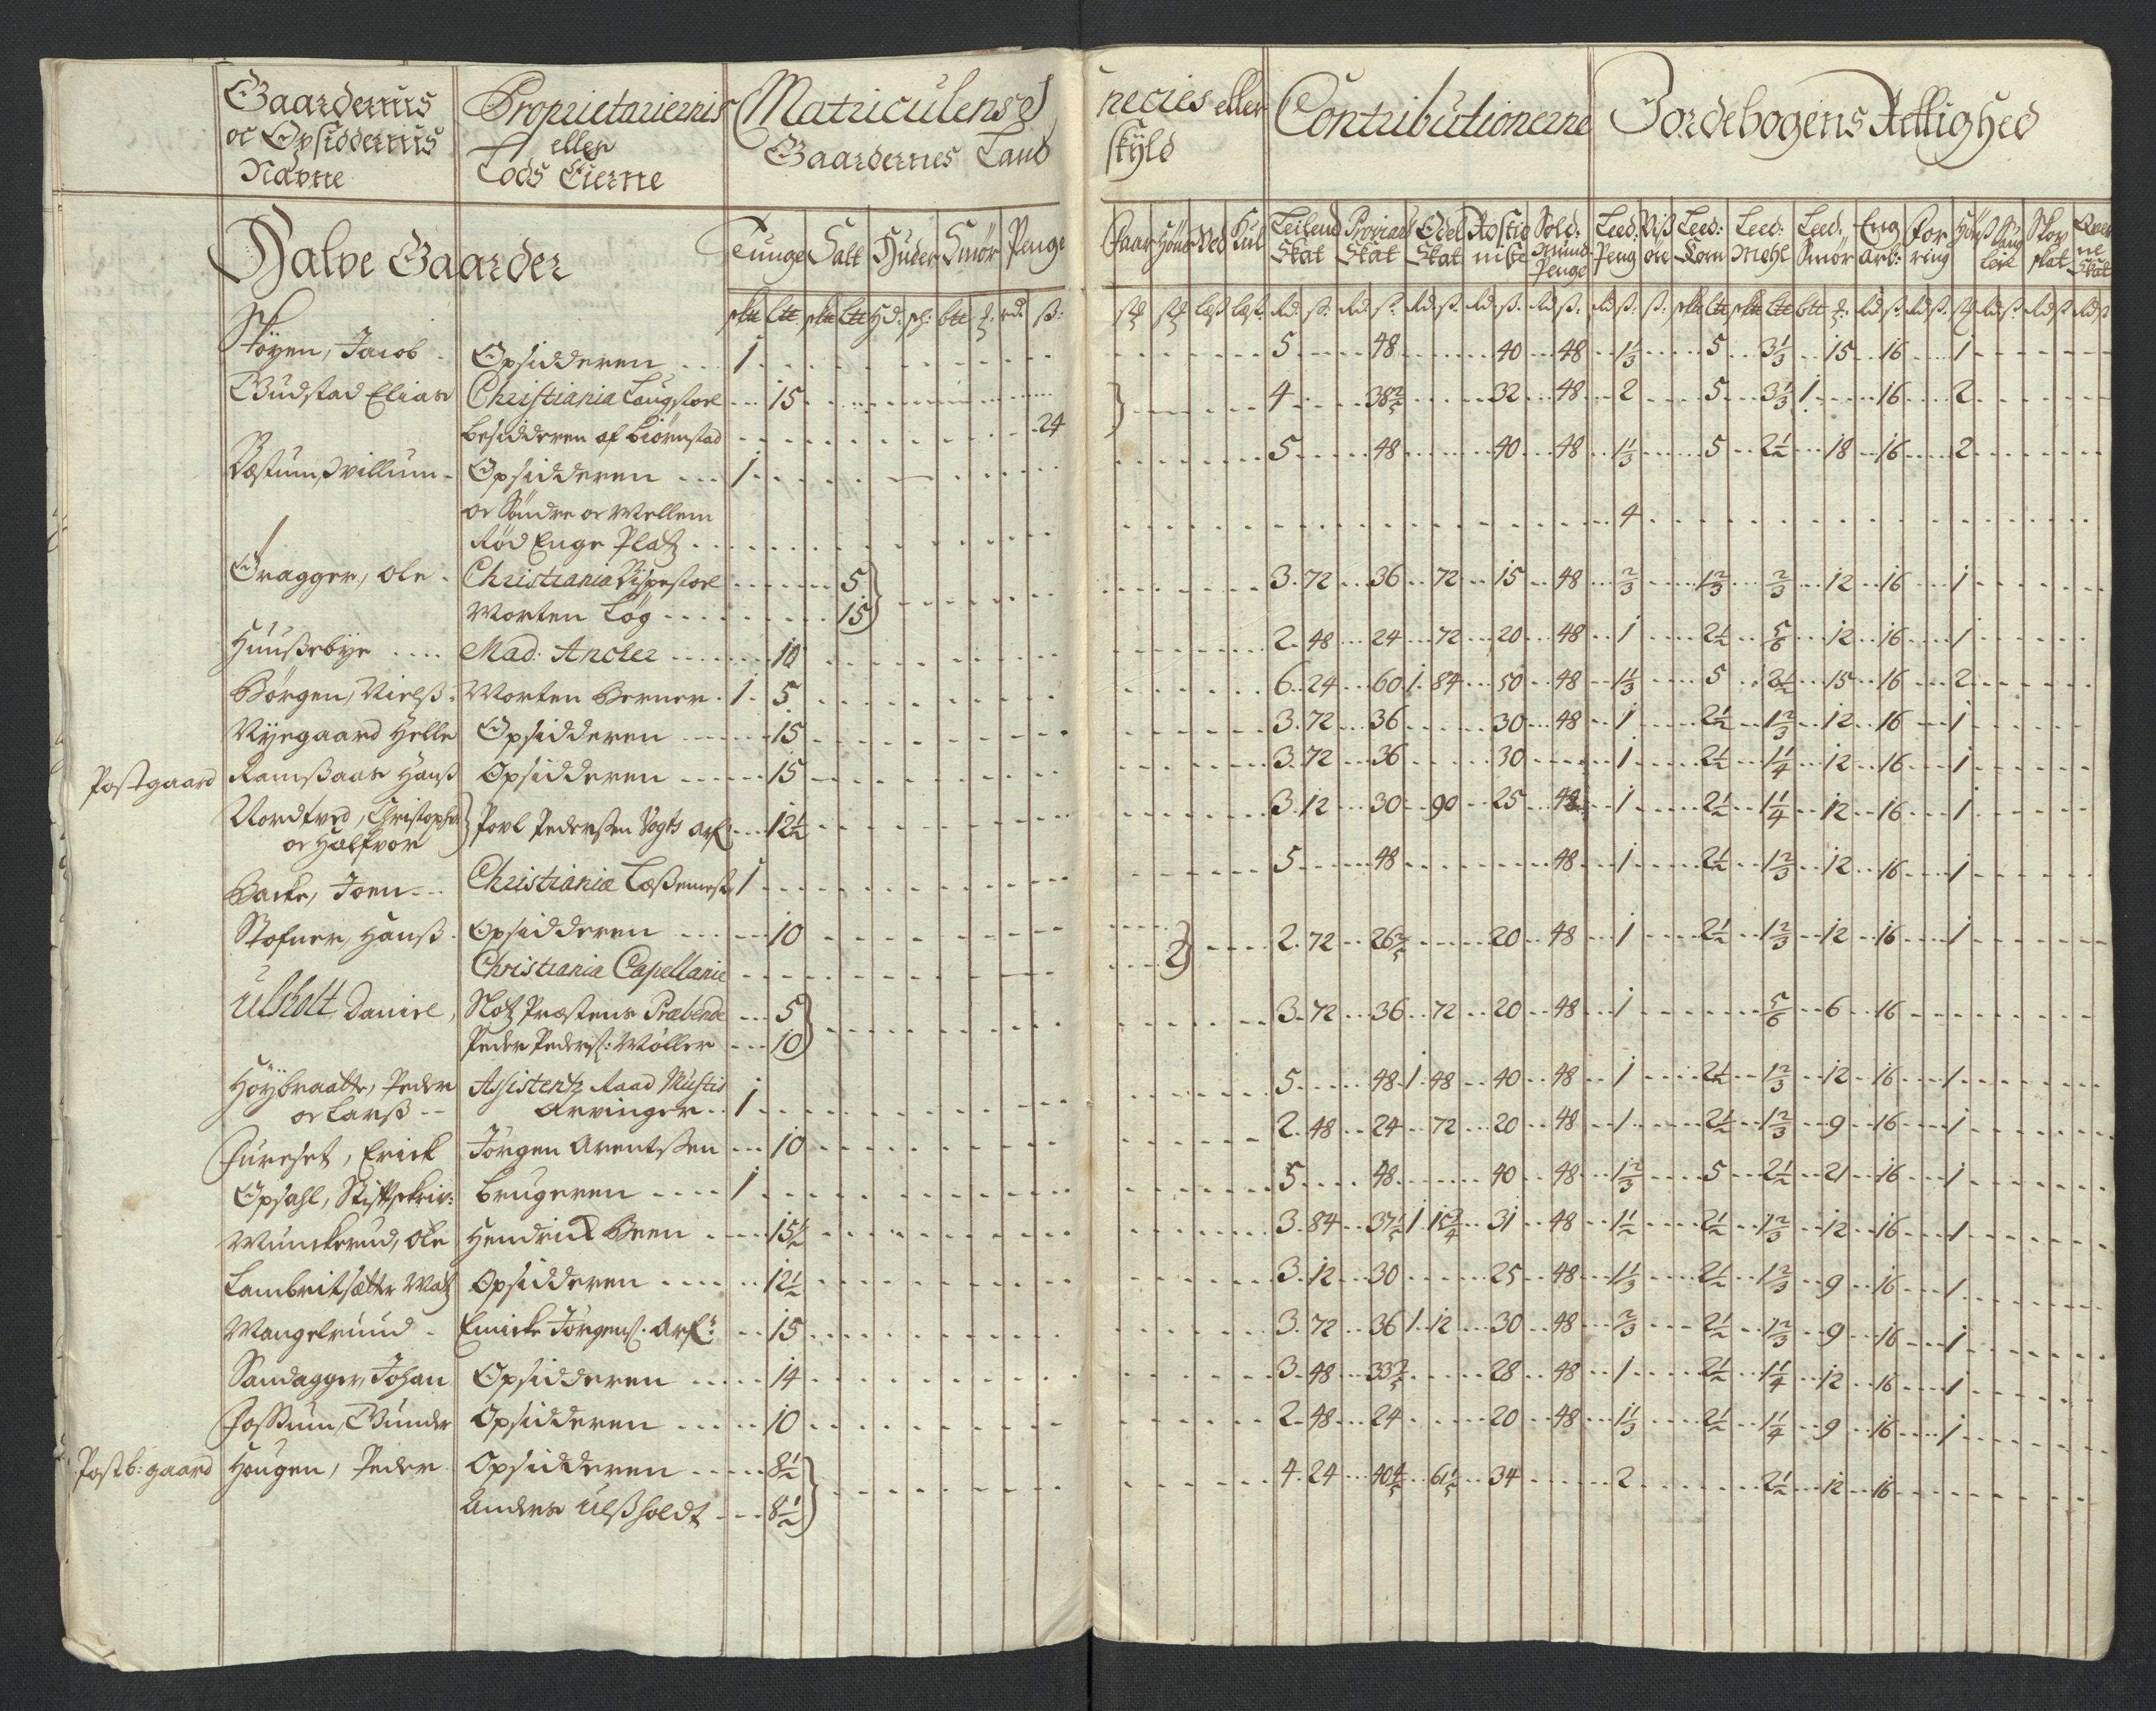 Gaardernis oc Opsiddernis Nafne | Proprietariernis eller Lods Eierne | Matriculens S Gaardernes Land
pecies eller skyld | Contributionerne | Jordebogens Rettighed
Halve Gaarder | Tunge | Salt | Huder | Smör | Penge
Faar | Höns | Ved | Kul | Leilend Skat | Proviant Skat | Odel Skat | Rostieniste | Sold: Maand Penge | Leed: Peng | Viß öre | Leed: Korn | Leed: Mehl | Leed: Smör | Eng Arb: | Foring | Skov skat | Qverne Skat
Stöyen, Jacob - Opsidderen 1 | 5 48 40 48 1 1/3 5 3 1/3 15 16 1
Gudstad Elias Christiania Laugstoel 15 | 4 38 2/5 32 48 2 5 3 1/3 1 16 2
besidderen af Biörnstad 24
Wæstum, Willum - Opsidderen 1 | 5 48 40 48 1 1/3 5 2 1/2 18 16 2
oc Söndre oc Mellem
Röd Enge Platz | 4
Gragger, Ole - Christiania Bispestoel 5 | 3 72 36 72 15 48 2/3 1 2/3 2/3 12 16 1
Morten Lög 15
Huußebye Mad: Ancher 10 | 2 48 24 72 20 48 1 2 1/2 5/6 12 16 1
Börgen, Nielß - Morten Berner 1 5 | 6 24 60 1 84 50 48 1 1/3 5 2 1/2 15 16 2
Nyegaard Helle Opsidderen 15 | 3 72 36 30 48 1 2 1/2 1 2/3 12 16 1
Postgaard Ramßaas Hanß Opsidderen 15 | 3 72 36 30 1 2 1/2 1 1/4 12 16 1
Nordtved, Christopher oc Halfvor Povl Pederßen Vogts Arf: 12 1/2 | 3 12 30 90 25 48 1 2 1/2 1 1/4 12 16 1
Backe, Joen - Christiania Læßemest 1 | 5 48 48 1 2 1/2 1 2/3 12 16 1
Stofner, Hanß - Opsidderen 10 | 2 72 26 2/5 20 48 1 2 1/2 1 2/3 12 16 1
Christiania Capellanie | 2
Ulsholt Daniel, Slotz Præstens Præbende 5 | 3 72 36 72 20 48 1 5/6 6 16
Peder Peders: Möller 10
Höybraatte, Peder Assistentz Raad Mustis | 5 48 1 48 40 48 1 2 1/2 1 2/3 12 16 1
oc Larß Arvinger 1
Furuset, Erick Jörgen Arentßen 10 | 2 48 24 72 20 48 1 2 1/2 1 2/3 9 16 1
Opsahl, Stiftskriv: Brugeren 1 | 5 48 40 48 1 2/3 5 2 1/2 21 16 1
Munckerud, Ole Hendrich Been 15 1/2 | 3 84 37 1/5 1 15 3/4 31 48 1 1/2 2 1/2 1 2/3 12 16 1
Lambertsætter Matz Opsidderen 12 1/2 | 3 12 30 25 48 1 1/3 2 1/2 1 2/3 9 16 1
Mangelruud - Emicke Jörgens: Arf: 15 | 3 72 36 1 12 30 48 2/3 2 1/2 1 2/3 9 16 1
Sandagger, Johan Opsidderen 14 | 3 48 33 3/5 28 48 1 2 1/2 1 1/4 12 16 1
Fossum, Gunder Opsidderen 10 | 2 48 24 20 48 1 1/3 2 1/2 1 1/4 9 16 1
Postb: gaard Hougen, Peder Opsidderen 8 1/2 | 4 24 40 4/5 61 1/5 34 2 2 1/2 12 16
Anders Ulßholdt 8 1/2